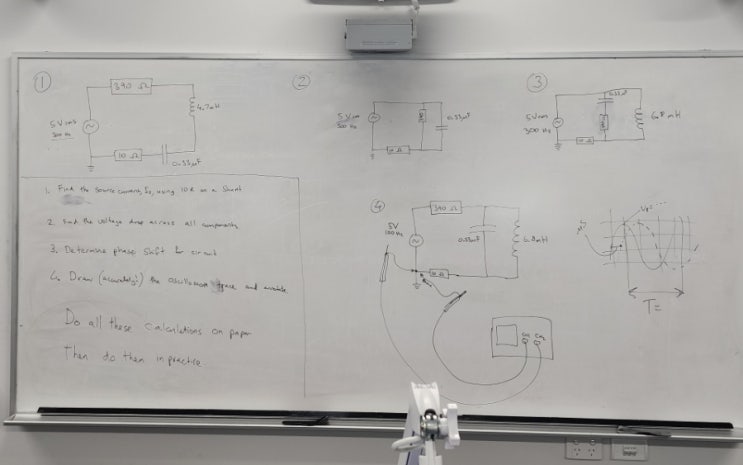 ①
390 Ω
4.7mH
5 Vrms
500 Hz
10 Ω
0.33μF
②
5 Vrms
500 Hz
0.33μF
③
0.33μF
5Vrms
300 Hz
6.8 mH
1. Find the source current, Is, using 10R as a Shunt
2. Find the voltage drop across all components
3. Determine phase shift for circuit
4. Draw (accurately!) the oscilloscope trace and annotate.
Do all these calculations on paper
Then do them in practice.
④
390 Ω
5V
0.33μF
6.8mH
Vp=
T=